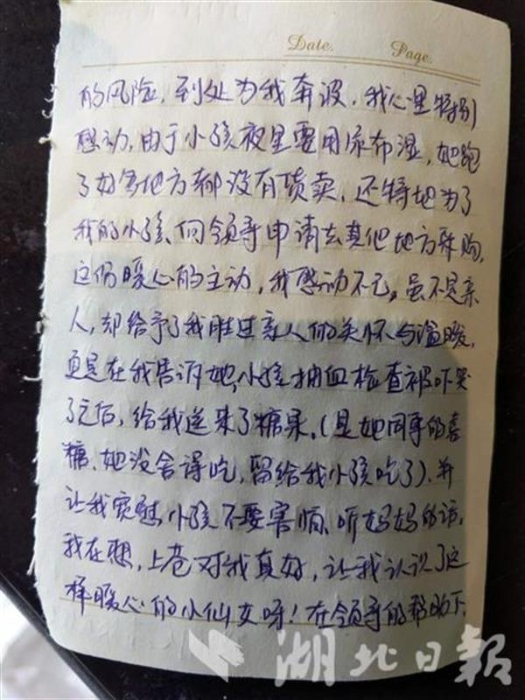 Date. Page.
的风险，到处为我奔波，我心里特别
感动，由于小孩夜里要用尿布湿，她跑
了好多地方都没有货卖，还特地为了
我的小孩、向领导申请去其他地方采购，
这份暖心的主动，我感动不已，虽不是亲
人，却给予了我胜过亲人的关怀与温暖，
更是在我告诉她，小孩抽血检查被吓哭
了之后，给我送来了糖果，（是她同事的喜
糖、她没舍得吃，留给我小孩吃了）、并
让我安慰小孩不要害怕、听妈妈的话，
我在想，上苍对我真好，让我认识了这
样暖心的小仙女呀！在领导的帮助下，
湖北日報